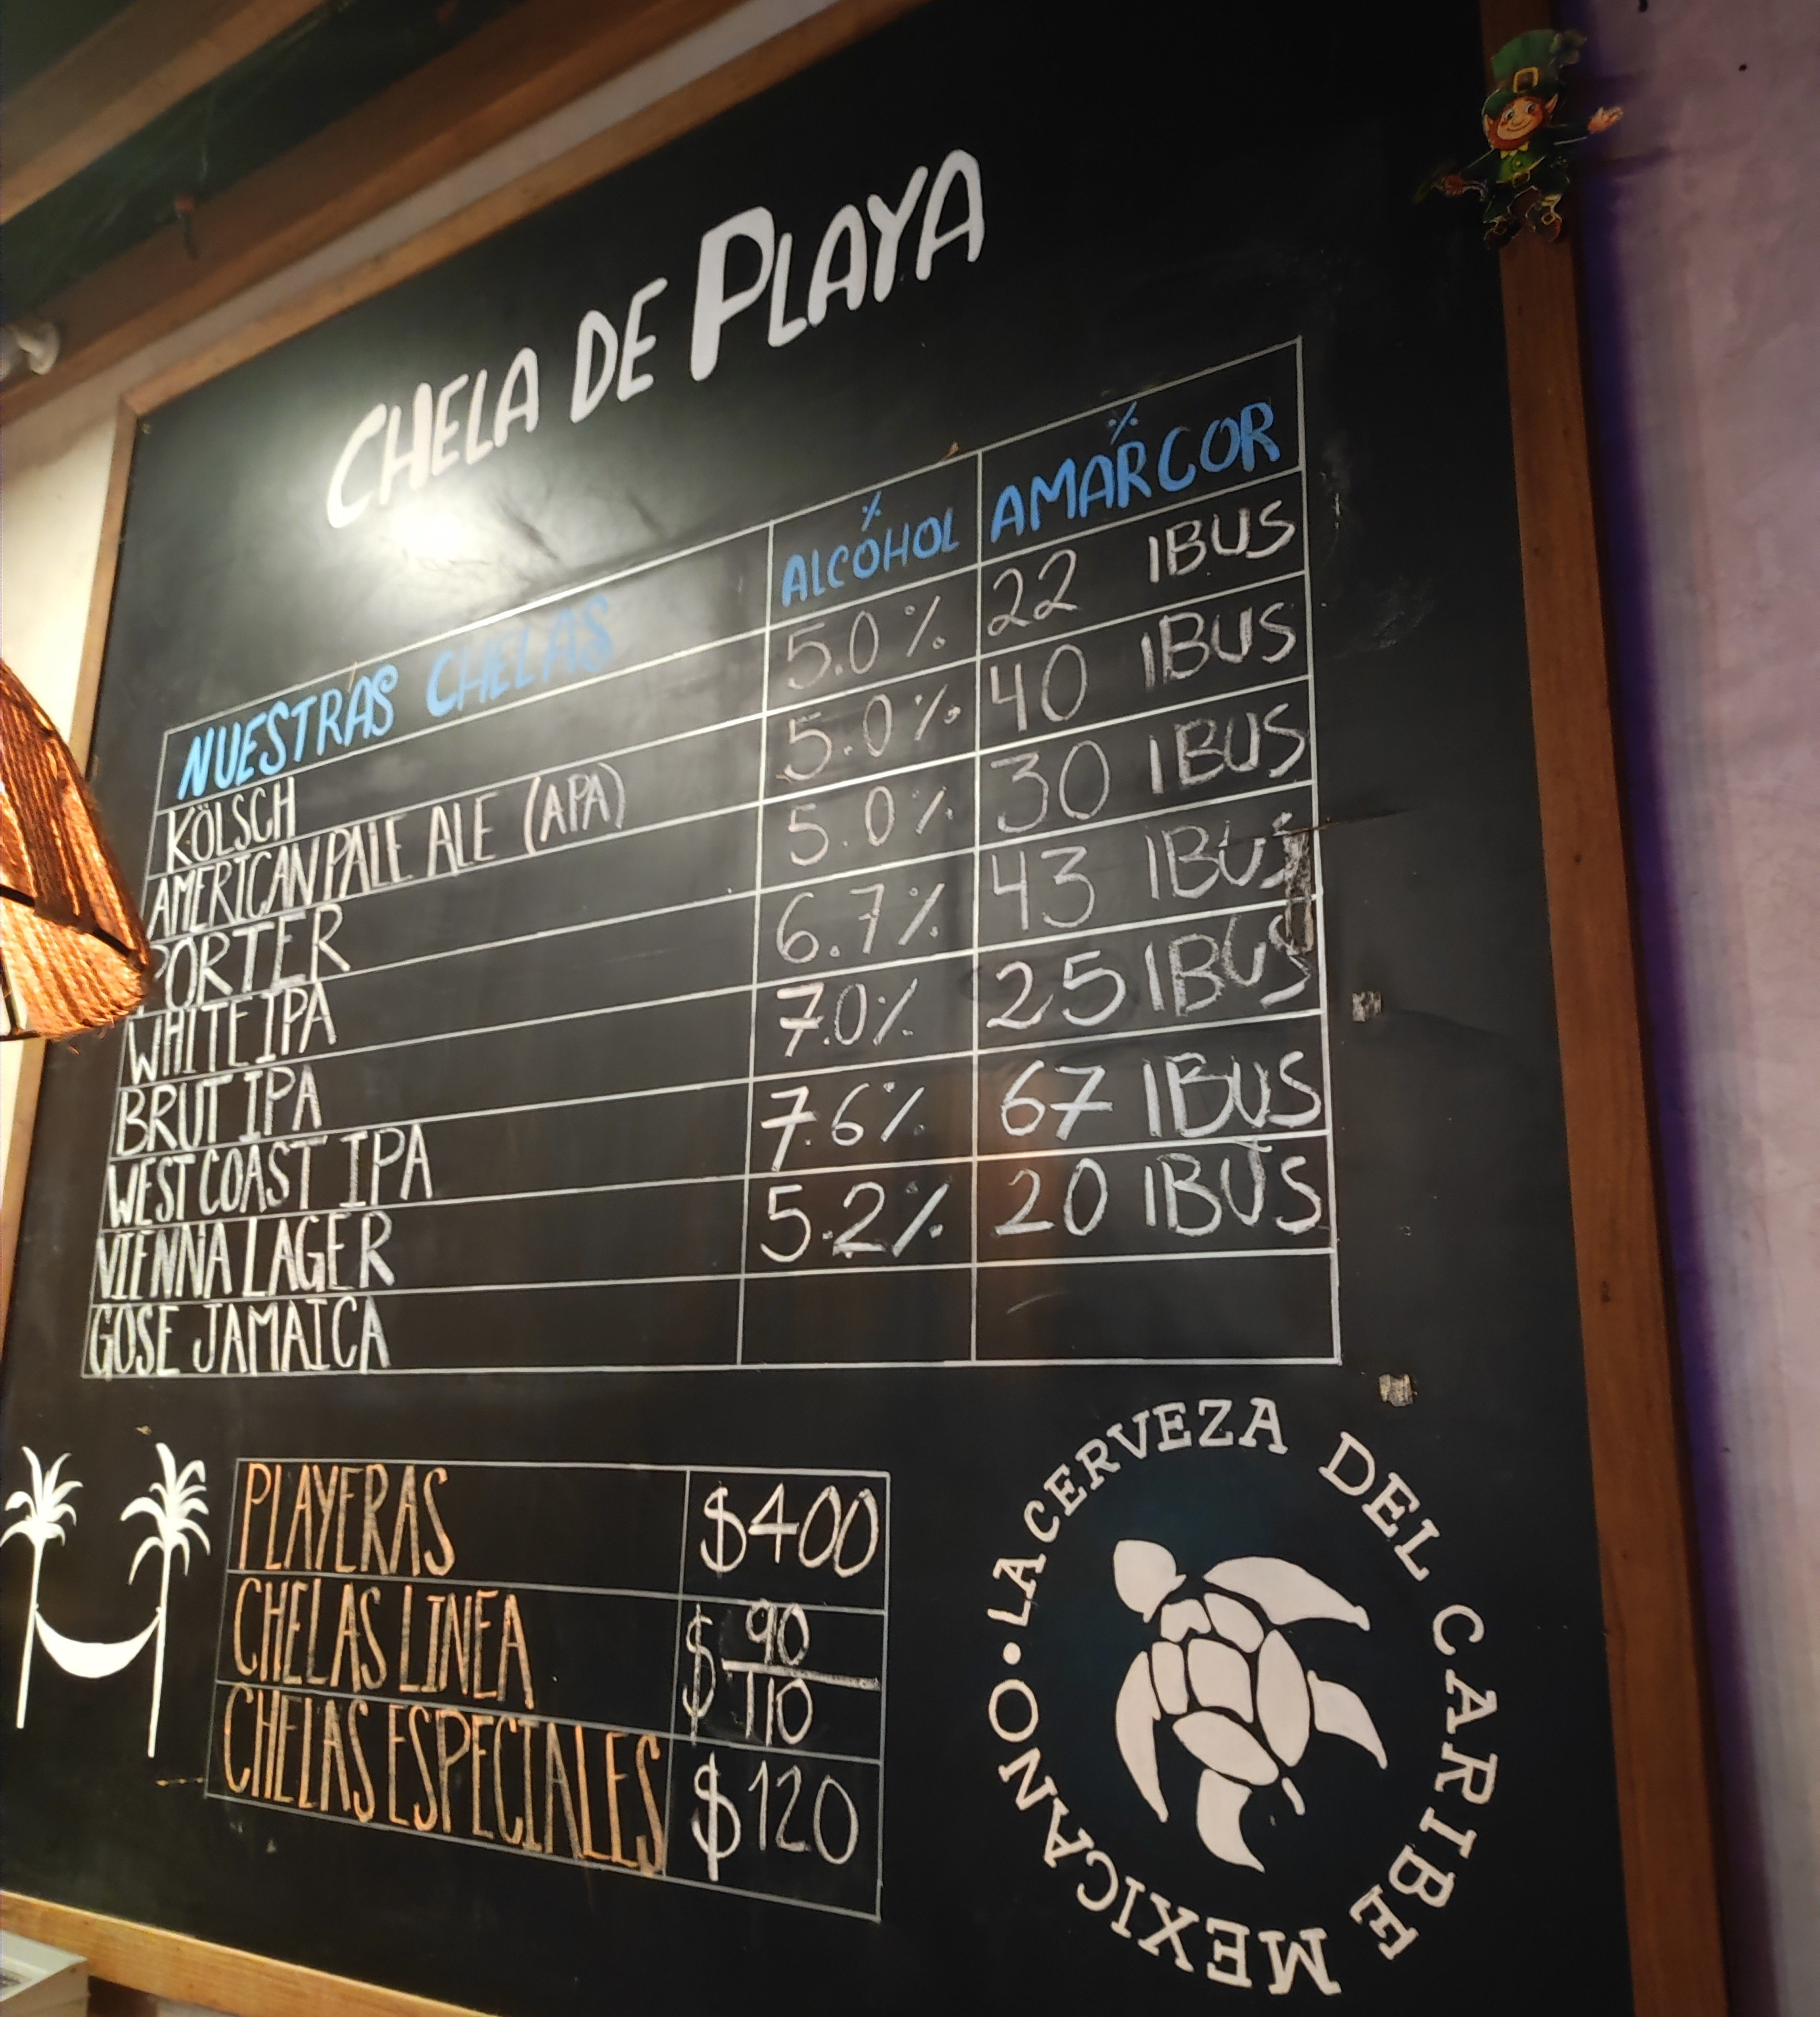 CHELA DE PLAYA
NUESTRAS CHELAS % ALCOHOL % AMARCOR
KÖLSCH 5.0% 22 IBUS
AMERICAN PALE ALE (APA) 5.0% 40 IBUS
PORTER 5.0% 30 IBUS
WHITE IPA 6.7% 43 IBUS
BRUT IPA 7.0% 25 IBUS
WEST COAST IPA 7.6% 67 IBUS
VIENNA LAGER 5.2% 20 IBUS
GOSE JAMAICA
PLAYERAS $400
CHELAS LINEA $ 90/110
CHELAS ESPECIALES $120
• LA CERVEZA DEL CARIBE MEXICANO